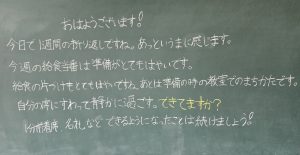 おはようございます！
今日で1週間の折り返しですね。あっというまに感じます。
今週の給食当番は準備がとてもはやいです。
給食の片づけもとてもはやいですね。あとは準備の時の教室でのまちかたです。
自分の席にすわって静かに過ごす。できてますか？
1分前着席、名札などできるようになったことは続けましょう！